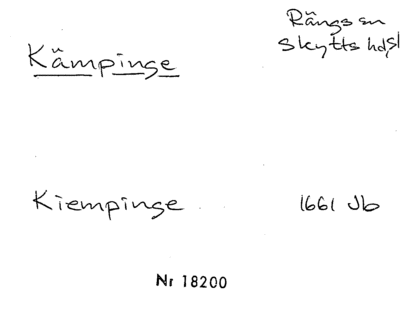 Rängs sn
Kämpinge
Skytts hd
Kiempinge 1661 Jb
Nr 18200